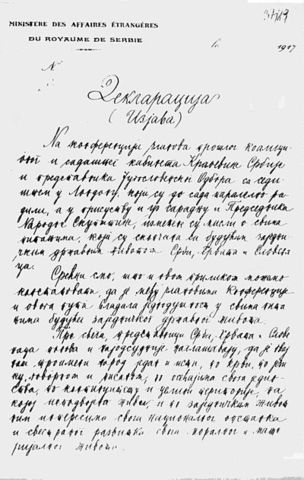 MINISTÈRE DES AFFAIRES ÉTRANGÈRES
DU ROYAUME DE SERBIE
le 1917
№
Декларација
(Изјава)
На конференцији чланова прошлог коалици
оног и садашњег кабинета Краљевине Србије
и представника Југословенског Одбора са седи
штем у Лондону, који су до сада паралелно ра
дили, а у присуству и уз сарадњу и Председника
Народне Скупштине, измењене су мисли о свима
питањима, која су скопчана са будућим заједни
чким државним животом Срба, Хрвата и Словена
ца.
Срећни смо, што и овом приликом можемо
констатовати, да је међу члановима Конференције
и овога пута владала једнодушност у свима пита
њима будућег заједничког државног живота.
Пре свега, представници Срба, Хрвата и Слове
наца понова и најодсудније наглашавају, да је овај
наш троимени народ један и исти, по крви, по јези
ку, говорном и писаном, по осећајима свога једин
ства, по континуитету и целини територије, на
којој неподвојено живи, и по заједничким живот
ним интересима свога националног опстанка
и свестраног развитка свога моралног и мате
ријалног живота.